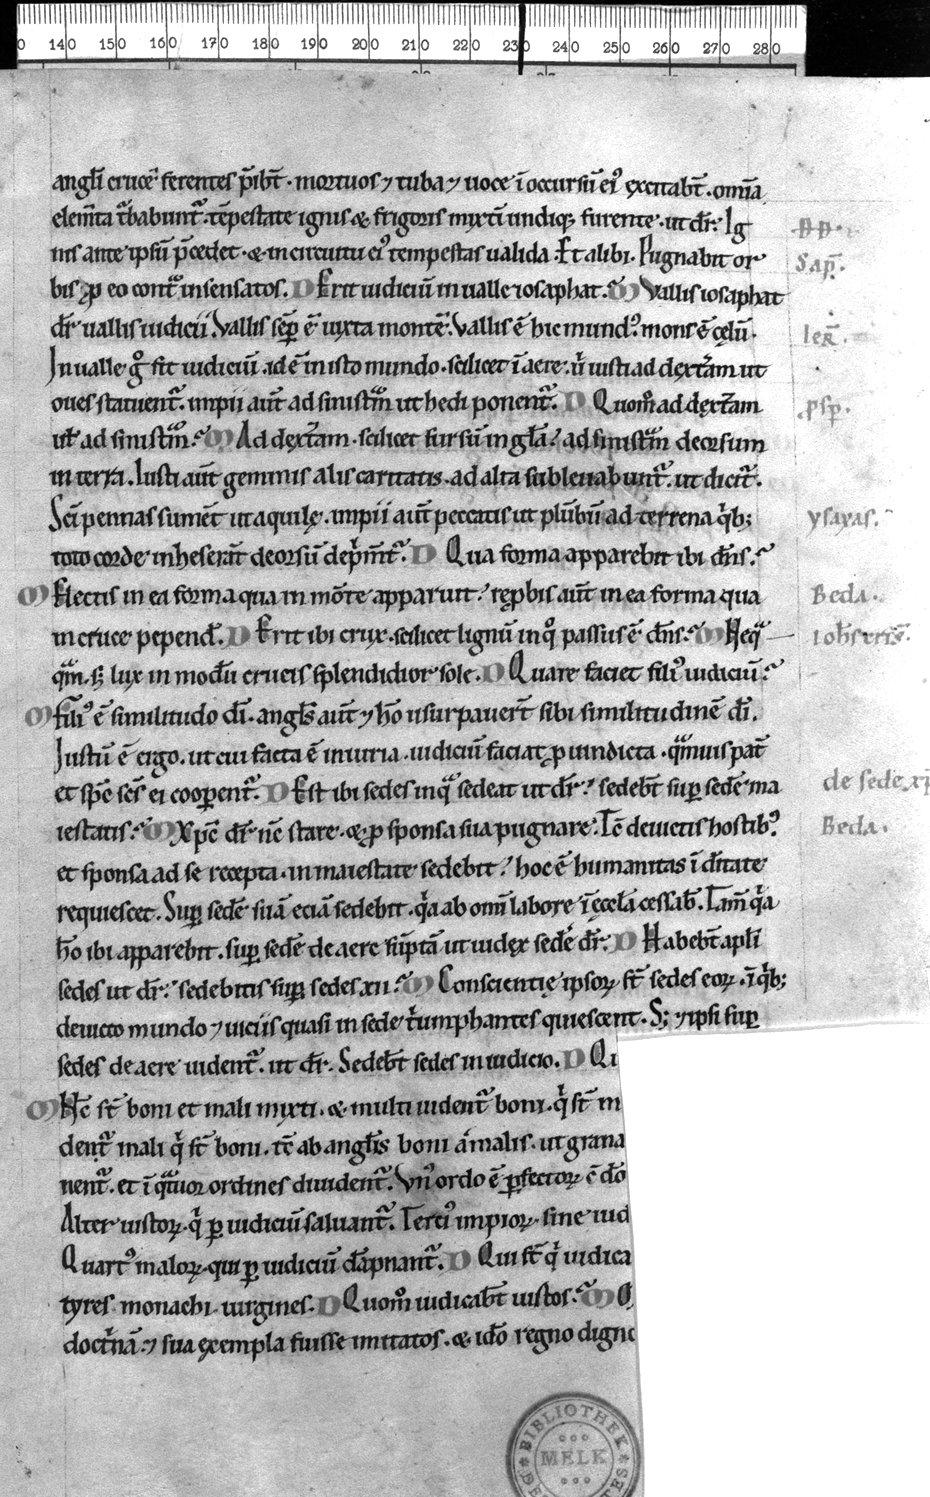 0 140 150 160 170 180 190 200 210 220 230 240 250 260 270 280
angl̄i crucē ferentes p̄ibt̄ · mortuos ⁊ tuba ⁊ uoce ī occursū ei᷒ ęxcitabt̄ . om̄ia
elem̄ta t̄babunt᷑ . tēpestate ignis & frigoris mixtī undiq; furente . ut dr̄ . Ig
nis ante ipsū p̄cedet . & in circuitu ei᷒ tempestas ualida . Et alibi . Pugnabit or
bis ꝓ eo cont̄ insensatos . D Erit iudiciū in ualle iosaphat . M Vallis iosaphat
dr̄ uallis iudicii . Vallis sēp ē iuxta montē . Vallis ē hic mund᷒ . mons ē cęlū .
In ualle gͦ fit iudiciū . id ē in isto mundo . scilicet ī aere . u̇ iusti ad dext̄am ut
oues statuent᷑ . impii aūt ad sinist̄m ut hedi ponent᷑ . D Quom̊ ad dęxt̄am
ul̄ ad sinist̄m . M Ad dęxt̄am . scilicet sursū in gl̄a . ad sinist̄m deorsum
in terra . Iusti aūt geminis alis caritatis . ad alta subleuabunt᷑ . ut dicit᷑ .
Sc̄i pennas sumēt ut aquilę . impii aūt peccatis ut plūbū ad terrena q̇b;
toto corde inheserāt deorsū dep̄m̄t᷑ . D Qua forma apparebit ibi dn̄s .
M Electis in ea forma qua in mōte apparuit . rępbis aūt in ea forma qua
in cruce pepend̄ . D Erit ibi crux . scilicet lignū in qͦ passus ē dn̄s . M Neq̄
q̄m . s; lux in modū crucis splendidior sole . D Quare faciet fili᷒ iudiciū .
M Fili᷒ ē similitudo dī . angl̄s aūt ⁊ hō usurpauer̄t sibi similitudinē dī .
Iustū ē ergo . ut cui facta ē iniuria . iudiciū faciat ꝓ uindicta . q̄muis pat̄
et spc̄ sc̄s ei cooꝑent᷑ . D Est ibi sedes in q̄ sedeat ut dr̄ . sedebt̄ suꝑ sedē ma
iestatis . M Xpc̄ dr̄ nc̄ stare . & ꝓ sponsa sua pugnare . Tc̄ deuictis hostib᷒
et sponsa ad se recepta . in maiestate sedebit . hoc ē humanitas ī diītate
requiescet . Suꝑ sedē suā eciā sedebit . q̇a ab om̄i labore ī ęccl̄a cessab̄ . Tam̄ q̇a
hō ibi apparebit . suꝑ sedē de aere sūptā ut iudęx sedē dr̄ . D Habebt̄ apl̄i
sedes ut dr̄ . sedebitis suꝑ sedes xii . M Conscientię ipsoꝝ st̄ sedes eoꝝ . ī q̇b;
deuicto mundo ⁊ uiciis quasi in sede t̄umphantes quiescent . S; ⁊ ipsi suꝑ
sedes de aere uident᷑ . ut dr̄ . Sedebt̄ sedes in iudicio . D Qu
M Nc̄ st̄ boni et mali mixti . & multi uident᷑ boni . q̇ st̄ m
dent᷑ mali q̇ st̄ boni . tc̄ ab angl̄is boni a malis . ut grana
nent᷑ . et ī q̄tuor ordines diuident᷑ . Vn᷒ ordo ē ꝑfectoꝝ ē dō
Alter iustoꝝ . q̇ ꝑ iudiciū saluant᷑ . Terci᷒ impioꝝ . sine iud
Quart᷒ maloꝝ . qui ꝑ iudiciū dāpnant᷑ . D Qui st̄ q̇ iudica
tyres . monachi . uirgines . D Quom̊ iudicabt̄ iustos . M Q
doct̄nā . ⁊ sua ęxempla fuisse imitatos . & idō regno digno
Sap̄ .
Ier̄ .
psp̄ .
ysayas .
Beda .
de sede xp̄i
Beda .
BIBLIOTHEK
MELK